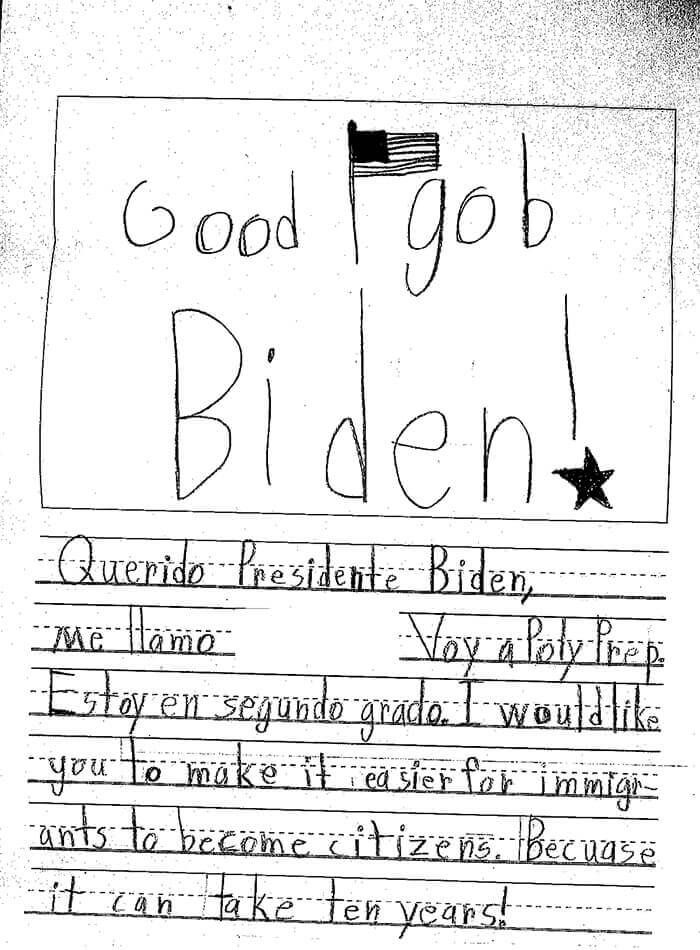 Good gob
Biden!
Querido Presidente Biden,
Me llamo Voy a Poly Prep.
Estoy en segundo grado. I would like
you to make it easier for immigr-
ants to become citizens. Becuase
it can take ten years!